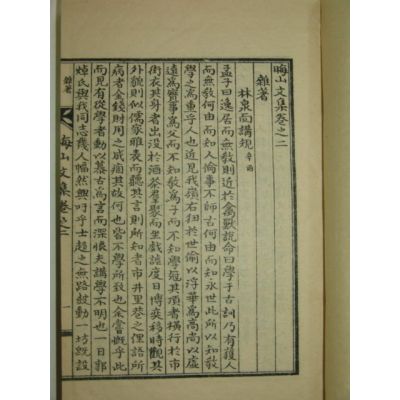 晦山文集卷之二
雜著
林泉面講規 辛酉
孟子曰逸居而無敎則近於禽獸說命曰學于古訓乃有獲人
而無敎何由而知人倫事不師古何由而知永世此所以知敎
學之爲重乎人也近見我嶺右狃於世偸以浮華爲高尙以虛
遠爲實事爲父而不知敎爲子而不知學冠其頂者橫行於市
街衣其身者出沒於酒茶羣聚而坐戱謔度日博奕移時觀其
外貌則似儒家雖表而聽其言則所知者市井里巷之俚語所
病者金錢財用之戚痛其故何也皆不學所致也余嘗慨乎此
而見有從學者動以慕古爲言而深恨夫講學不明也一日郭
焯氏與我同志幾人幡然興吁乎士趨之無路鼓動一坊旣設
雜著
晦山文集卷之二
一